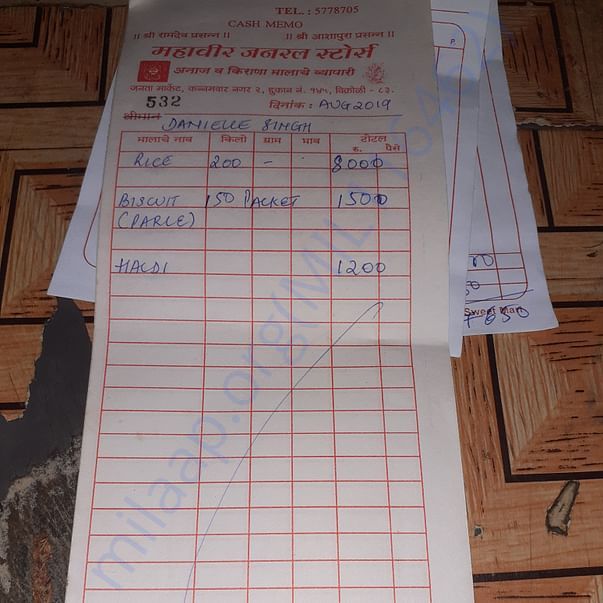 TEL. : 5778705
CASH MEMO
|| श्री रामदेव प्रसन्न || || श्री आशापुरा प्रसन्न ||
महावीर जनरल स्टोर्स
अनाज व किराणा मालाचे व्यापारी
जनता मार्केट, कन्नमवार नगर २, दुकान नं. १४५, विक्रोळी - ८३.
532 दिनांक : AUG 2019
श्रीमान DANIELLE SINGH
मालाचे नाव किलो ग्राम भाव टोटल
रु. पैसे
RICE 200 - 8000
BISCUIT 150 PACKET 1500
(PARLE)
HALDI 1200
milaap.org(MIL
P
Sweet Mart